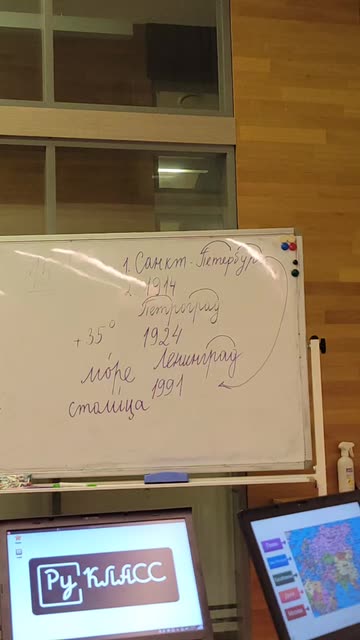 1. Санкт-Петербург
2. 1914
Петроград
+35° 1924
мо́ре Ленинград
столи́ца 1991
Ру КЛАСС